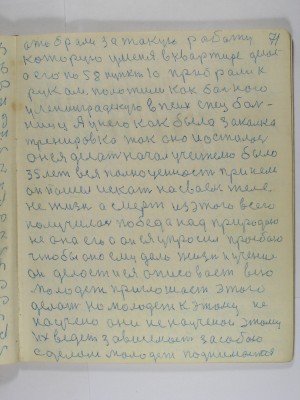 отобрали за такую работу 71
которую у меня в квартире делал
а его по 58 пункт 10 прибрали к
рукам положили как больного
в ленинградскую в псих спец боль-
ницу я у него как была закалка
тренировка так оно и осталось
он ея делать начал учителю было
35 лет вся полноценность при нем
он пошел искать на своем теле
не жизнь а смерть из этого всего
получилась победа над природою
не она его а он ея упросил прозьбою
чтобы она ему дала жизнь и учение
он делает и ея описовает всю
молодеж приглошает этого
делать но молодеж к этому не
научено они не наученой этому
их ведет зависемост за собою
с делом молодеж поднимается